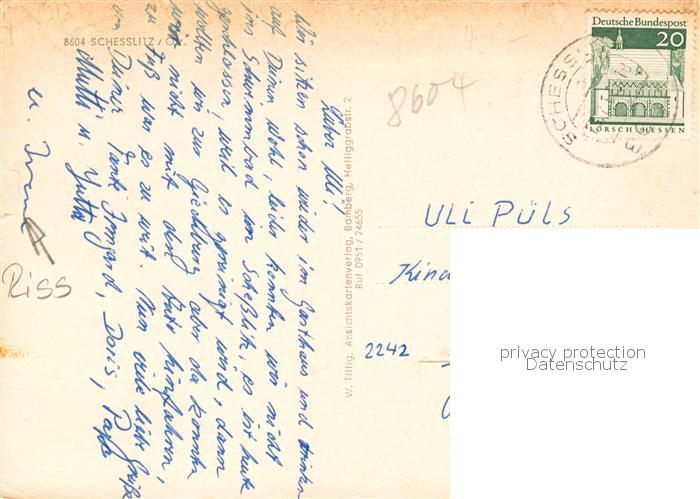 8604 SCHESSLITZ / Ofr.
Lieber Uli!
Wir sitzen schon wieder im Gasthaus und trinken
auf Deinen Wohl, leider konnten wir nicht
im Schwimmbad im Scheßlitz, es ist heute
geschlossen, weil es gereinigt wird, dann
wollten wir zur Giechburg aber da konnten
wir nicht mit dem Auto hinfahren,
zu Fuß war es zu weit. Nun viele liebe Grüße
von Deiner Tante Irmgard, Doris, Papa
Mutti u. Jutta
u.
RISS
W. Tillig, Ansichtskartenverlag, Bamberg, Heiliggrabstr. 2
Ruf 0951 / 24655
8604
Deutsche Bundespost
20
LORSCH/HESSEN
SCHESSLITZ
ULI PÜLS
Kin
2242
privacy protection
Datenschutz